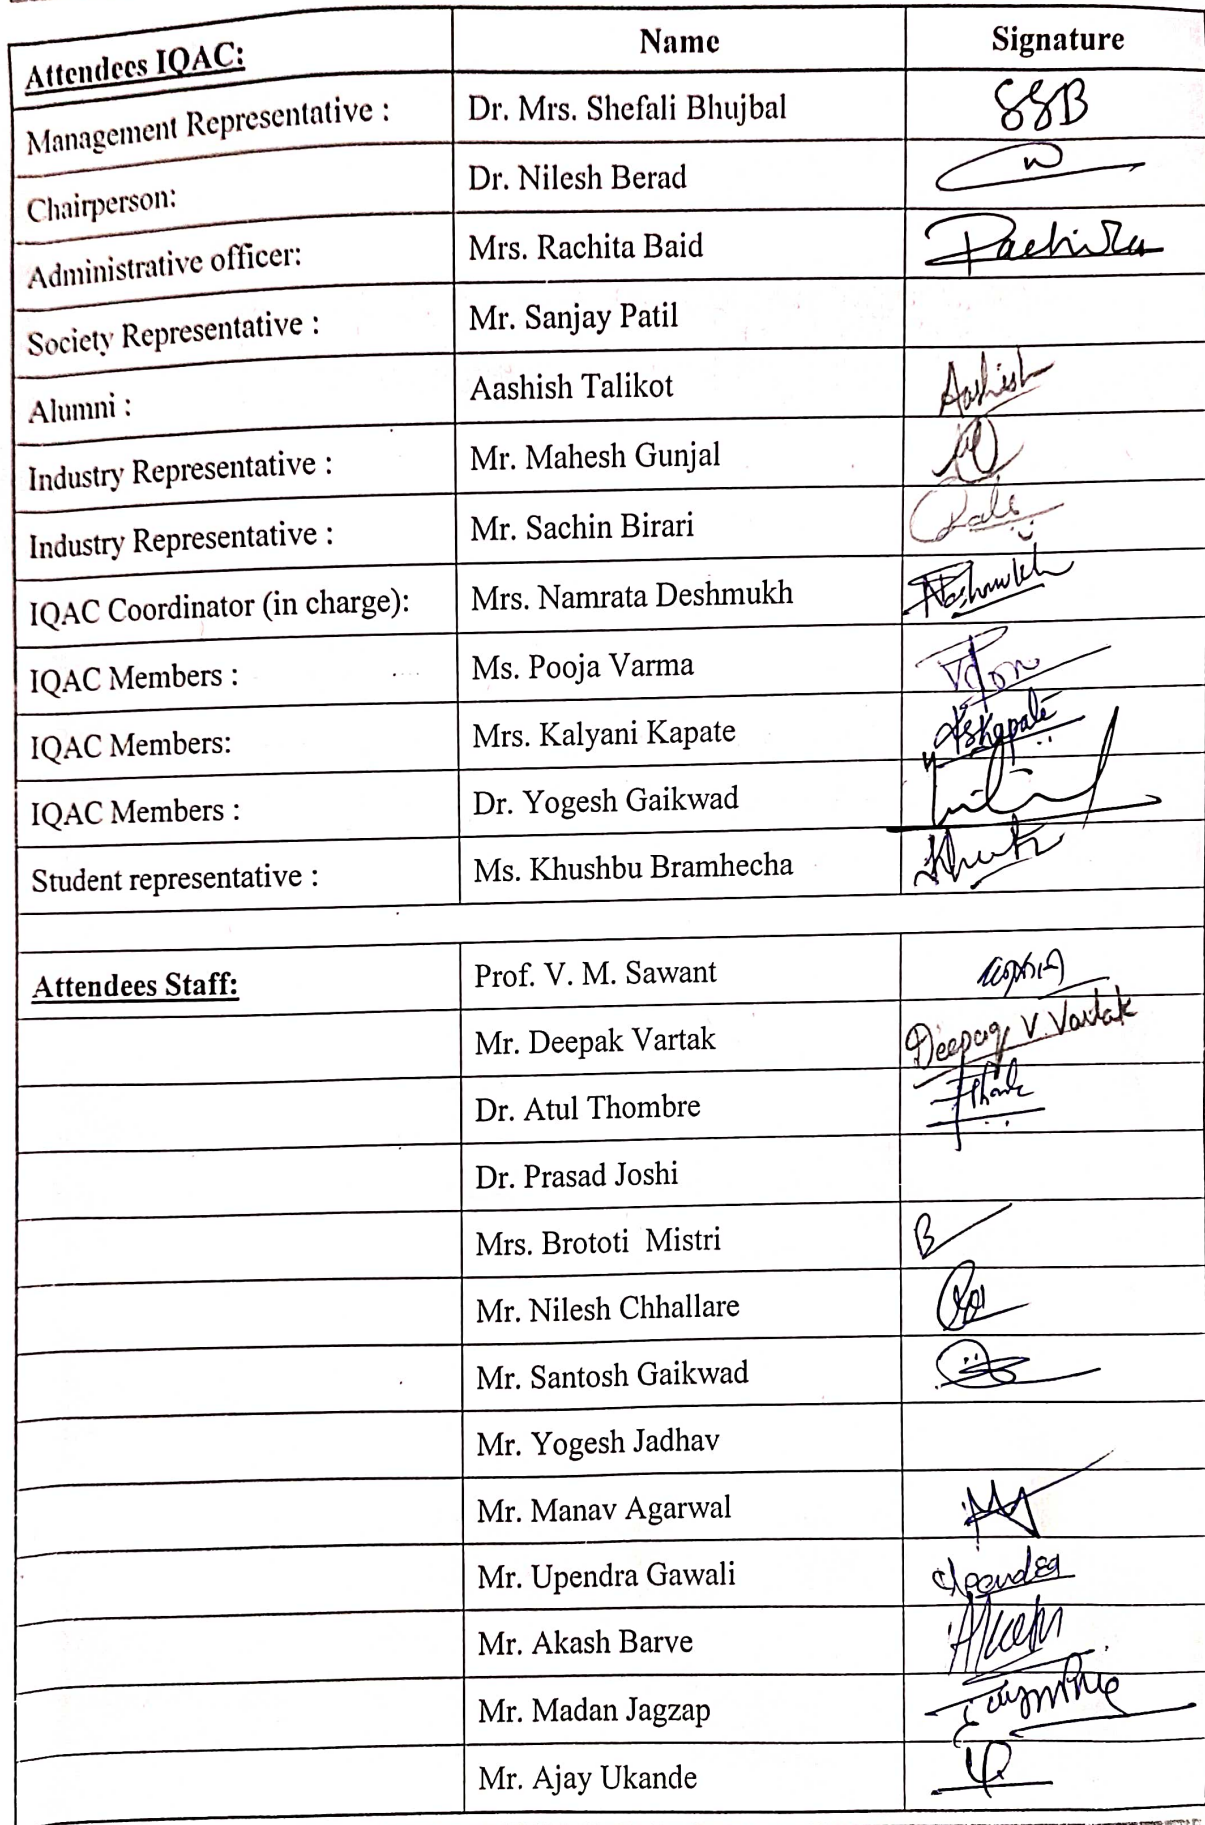 Attendees IQAC: Name Signature
Management Representative : Dr. Mrs. Shefali Bhujbal SSB
Chairperson: Dr. Nilesh Berad
Administrative officer: Mrs. Rachita Baid Rachita
Society Representative : Mr. Sanjay Patil
Alumni : Aashish Talikot Aashish
Industry Representative : Mr. Mahesh Gunjal
Industry Representative : Mr. Sachin Birari
IQAC Coordinator (in charge): Mrs. Namrata Deshmukh NDeshmukh
IQAC Members : Ms. Pooja Varma
IQAC Members: Mrs. Kalyani Kapate
IQAC Members : Dr. Yogesh Gaikwad
Student representative : Ms. Khushbu Bramhecha
Attendees Staff: Prof. V. M. Sawant
Mr. Deepak Vartak Deepak V. Vartak
Dr. Atul Thombre
Dr. Prasad Joshi
Mrs. Brototi Mistri B
Mr. Nilesh Chhallare
Mr. Santosh Gaikwad
Mr. Yogesh Jadhav
Mr. Manav Agarwal
Mr. Upendra Gawali Upendra
Mr. Akash Barve Akash
Mr. Madan Jagzap
Mr. Ajay Ukande